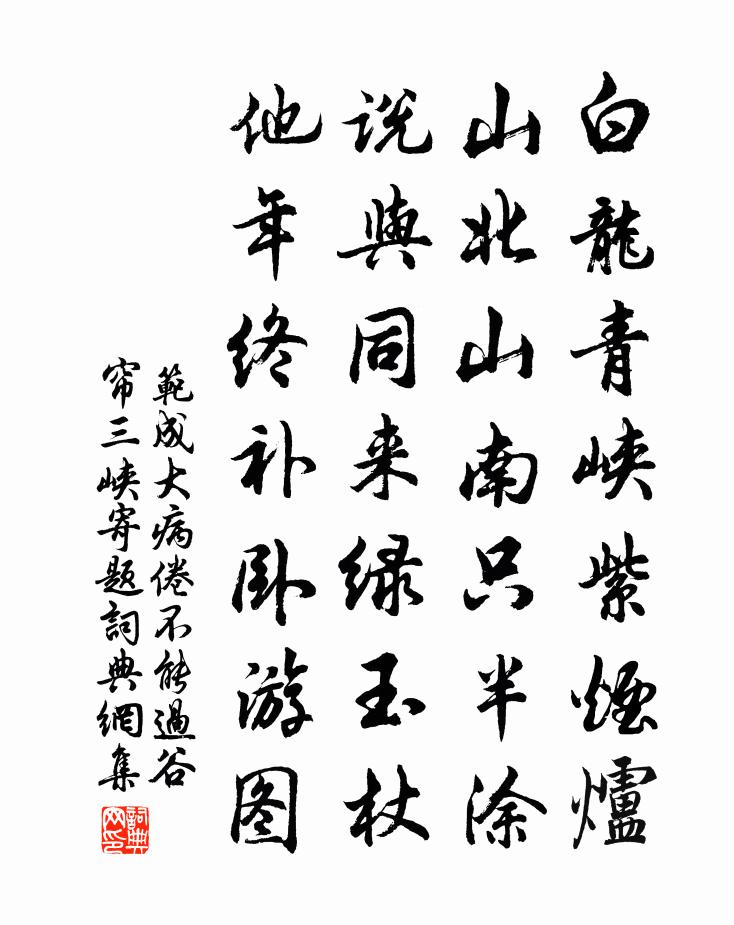 白龍青峽紫煙爐
山北山南只半涂
说與同来绿玉杖
他年终补卧游图
範成大病倦不能過谷
帘三峽寄題詞典網集
詞典网印